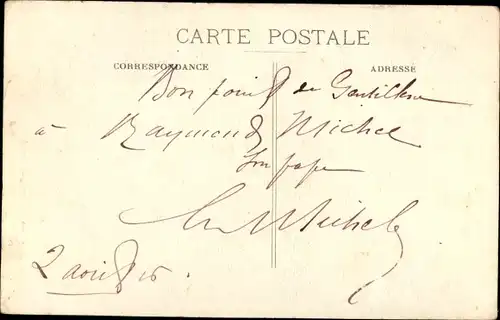 CARTE POSTALE
CORRESPONDANCE
ADRESSE
Bon point de Gentillesse
à Raymond Michel
Son papa
Michel
2 août 15